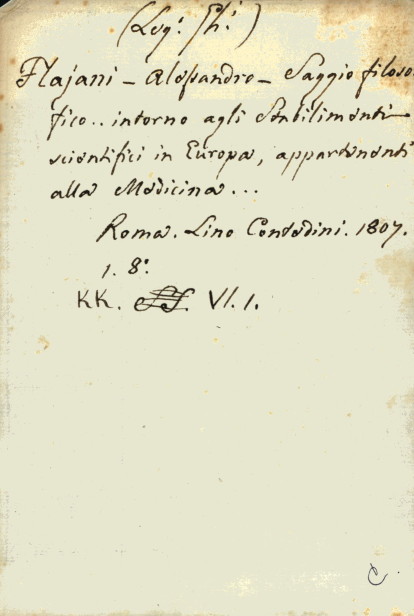 Flajani - Alessandro - Saggio filoso
fico.. intorno agli Stabilimenti
scientifici in Europa, appartenenti
alla Medicina...
Roma. Lino Contedini. 1807.
1. 8º.
KK. VI. 1.
C